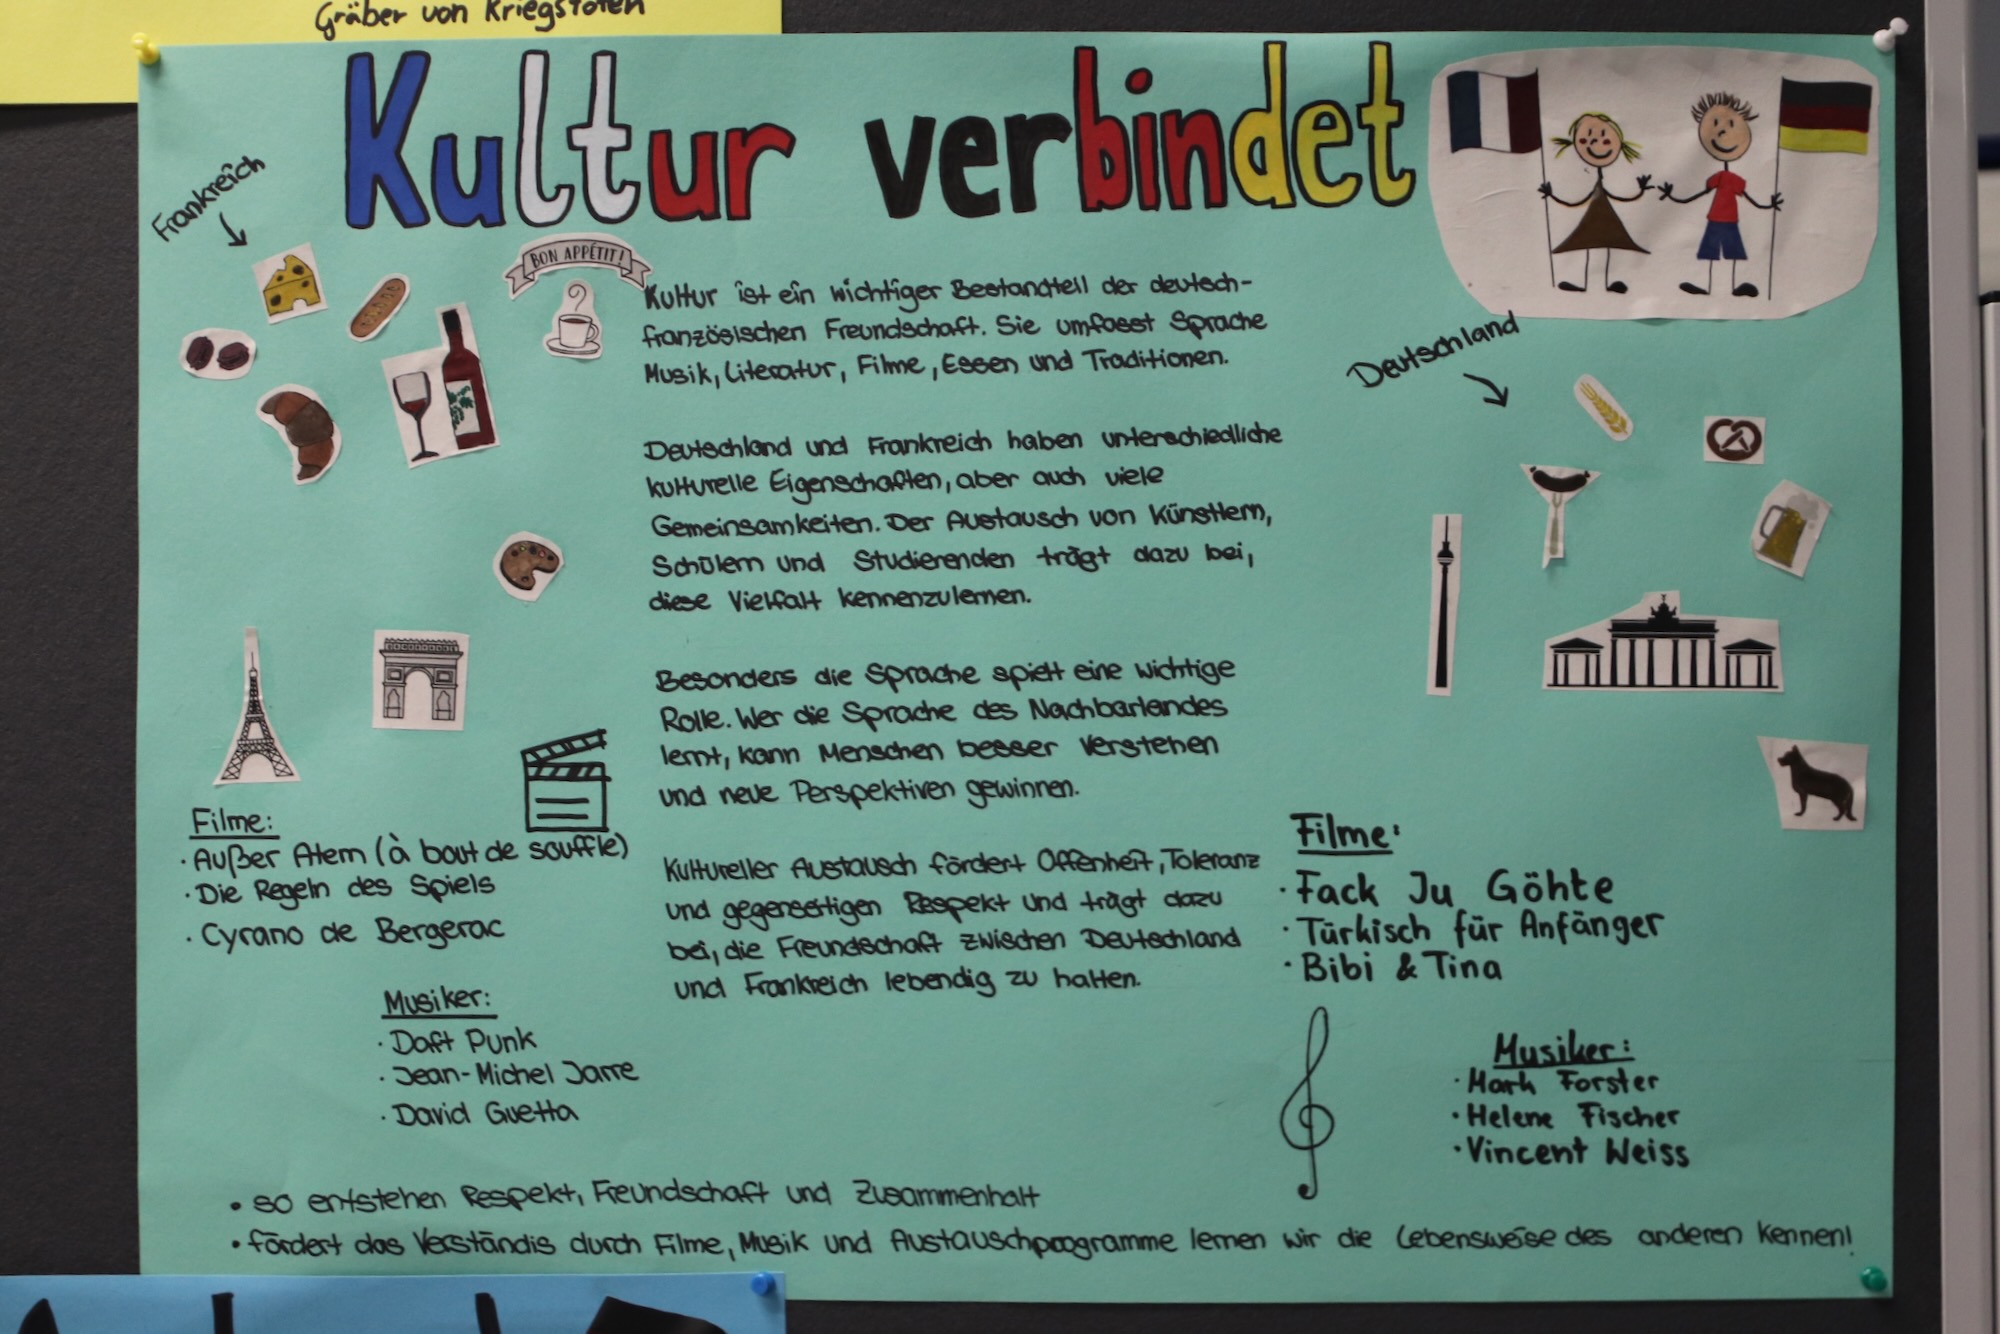 Gräber von Kriegstoten
Kultur verbindet
Frankreich
BON APPÉTIT!
Kultur ist ein wichtiger Bestandteil der deutsch-
französischen Freundschaft. Sie umfasst Sprache
Musik, Literatur, Filme, Essen und Traditionen.
Deutschland und Frankreich haben unterschiedliche
kulturelle Eigenschaften, aber auch viele
Gemeinsamkeiten. Der Austausch von Künstlern,
Schülern und Studierenden trägt dazu bei,
diese Vielfalt kennenzulernen.
Besonders die Sprache spielt eine wichtige
Rolle. Wer die Sprache des Nachbarlandes
lernt, kann Menschen besser verstehen
und neue Perspektiven gewinnen.
Kultureller Austausch fördert Offenheit, Toleranz
und gegenseitigen Respekt und trägt dazu
bei, die Freundschaft zwischen Deutschland
und Frankreich lebendig zu halten.
Filme:
· Außer Atem (à bout de souffle)
· Die Regeln des Spiels
· Cyrano de Bergerac
Musiker:
· Daft Punk
· Jean-Michel Jarre
· David Guetta
Deutschland
Filme:
· Fack Ju Göhte
· Türkisch für Anfänger
· Bibi & Tina
Musiker:
· Mark Forster
· Helene Fischer
· Vincent Weiss
• so entstehen Respekt, Freundschaft und Zusammenhalt
• fördert das Verständis durch Filme, Musik und Austauschprogramme lernen wir die Lebensweise des anderen kennen!